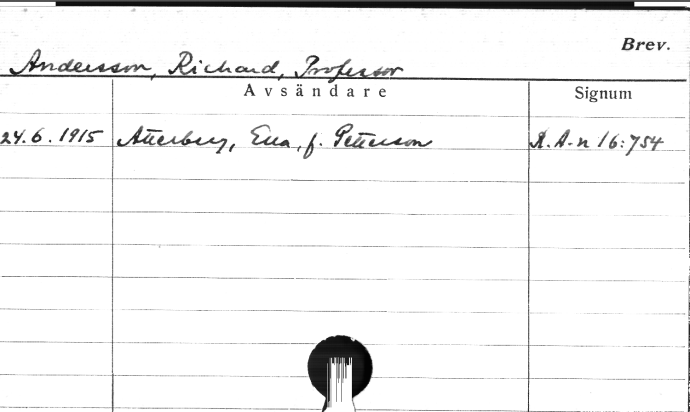 Brev.
Andersson, Richard, Professor
Avsändare Signum
24.6.1915 Atterberg, Ella, f. Petterson R.A-n 16:754